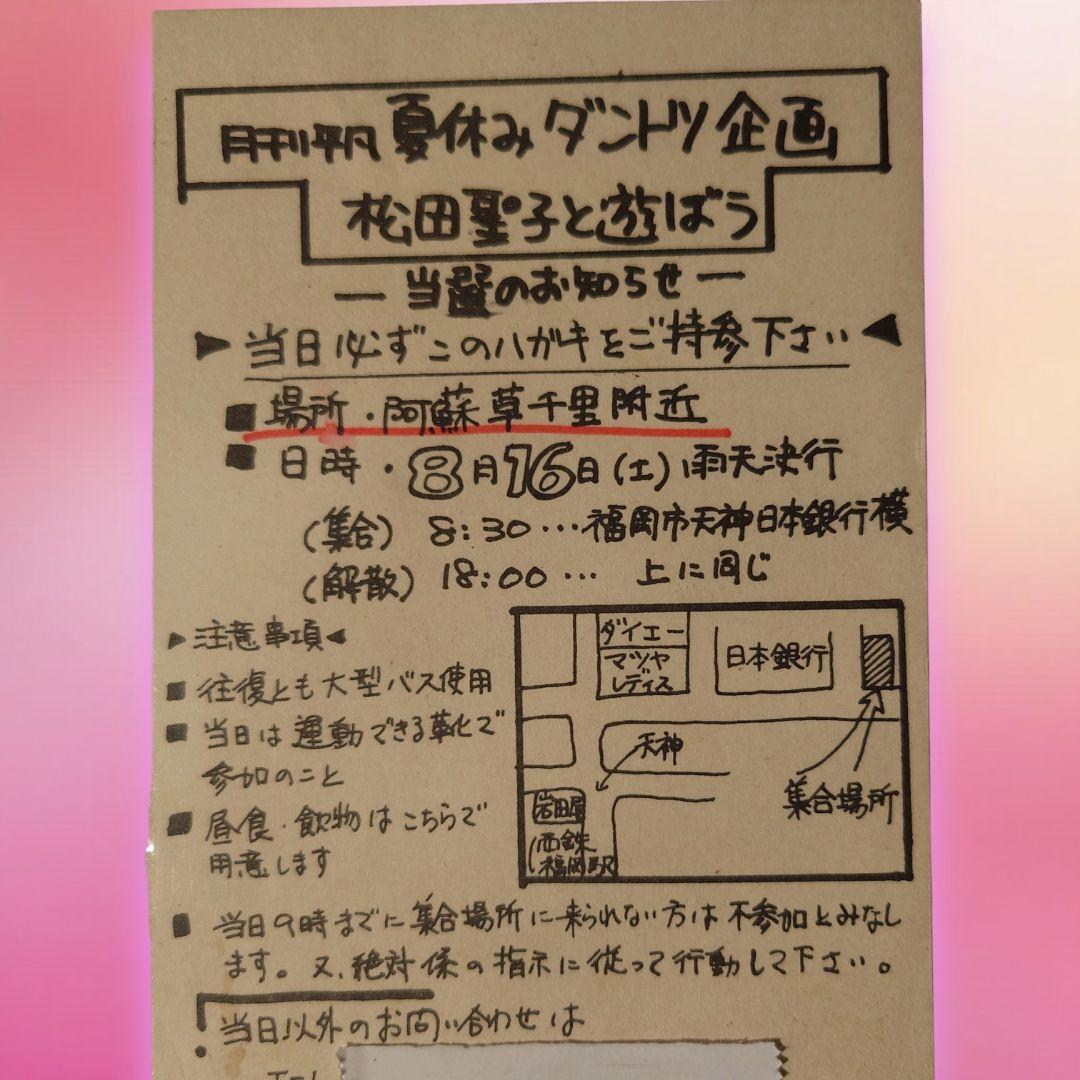 月刊平凡 夏休みダントツ企画
松田聖子と遊ばう
― 当選のお知らせ ―
▶当日必ずこのハガキをご持参下さい◀
■場所・阿蘇草千里附近
■日時・8月16日(土)雨天決行
(集合) 8:30…福岡市天神日本銀行横
(解散) 18:00… 上に同じ
▶注意事項◀
■往復とも大型バス使用
■当日は運動できる靴で
参加のこと
■昼食・飲物はこちらで
用意します
ダイエー
マツヤ
レディス
日本銀行
天神
集合場所
岩田屋
西鉄
福岡駅
■当日9時までに集合場所に来られない方は不参加とみなし
ます。又、絶対係の指示に従って行動して下さい。
当日以外のお問い合わせは